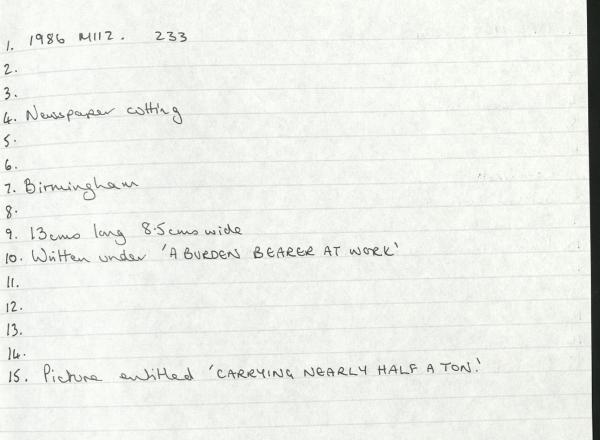 1. 1986 M112. 233
2.
3.
4. Newspaper cutting
5.
6.
7. Birmingham
8.
9. 13cms long 8.5cms wide
10. Written under 'A BURDEN BEARER AT WORK'
11.
12.
13.
14.
15. Picture entitled 'CARRYING NEARLY HALF A TON.'